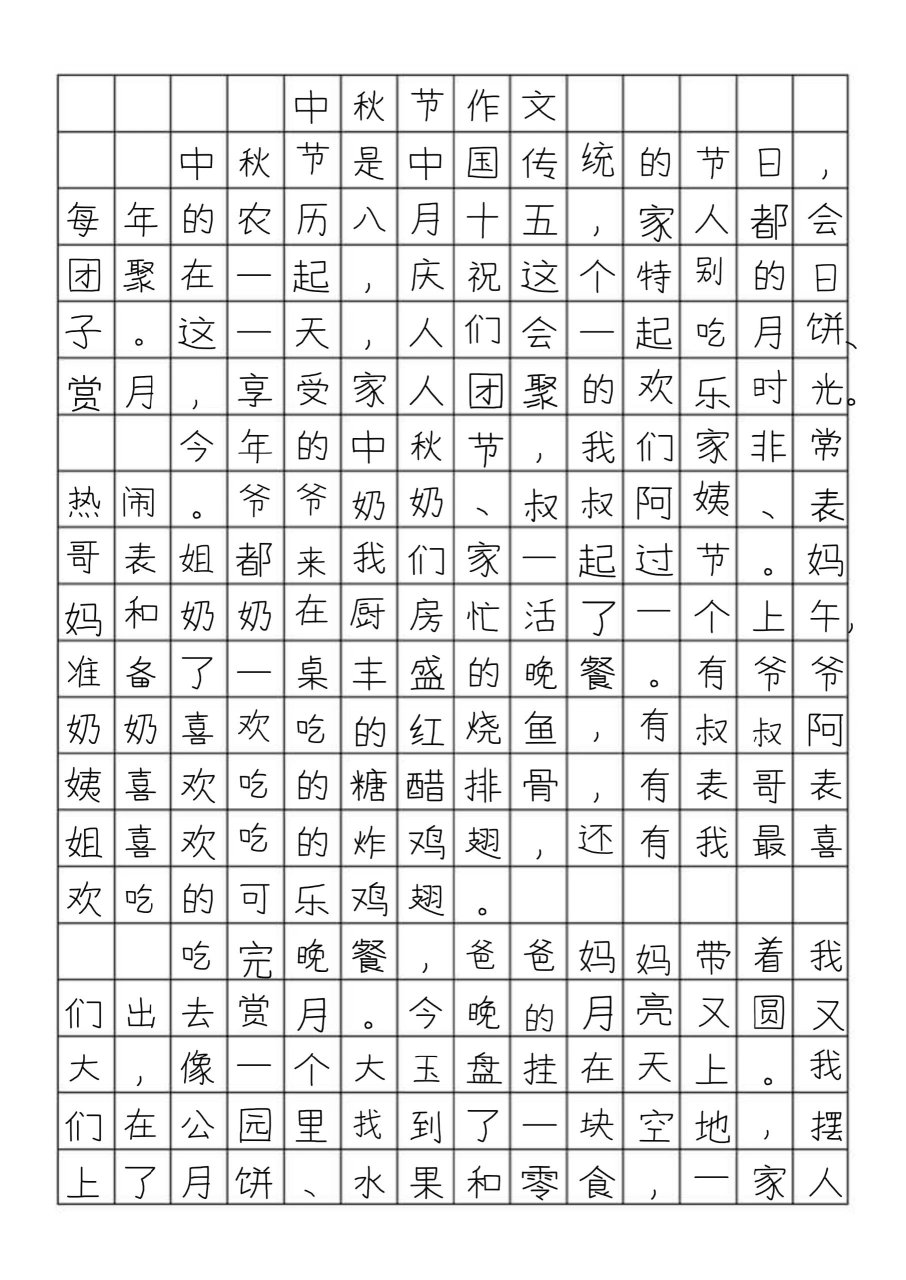 中秋节作文
中秋节是中国传统的节日，
每年的农历八月十五，家人都会
团聚在一起，庆祝这个特别的日
子。这一天，人们会一起吃月饼、
赏月，享受家人团聚的欢乐时光。
今年的中秋节，我们家非常
热闹。爷爷奶奶、叔叔阿姨、表
哥表姐都来我们家一起过节。妈
妈和奶奶在厨房忙活了一个上午，
准备了一桌丰盛的晚餐。有爷爷
奶奶喜欢吃的红烧鱼，有叔叔阿
姨喜欢吃的糖醋排骨，有表哥表
姐喜欢吃的炸鸡翅，还有我最喜
欢吃的可乐鸡翅。
吃完晚餐，爸爸妈妈带着我
们出去赏月。今晚的月亮又圆又
大，像一个大玉盘挂在天上。我
们在公园里找到了一块空地，摆
上了月饼、水果和零食，一家人